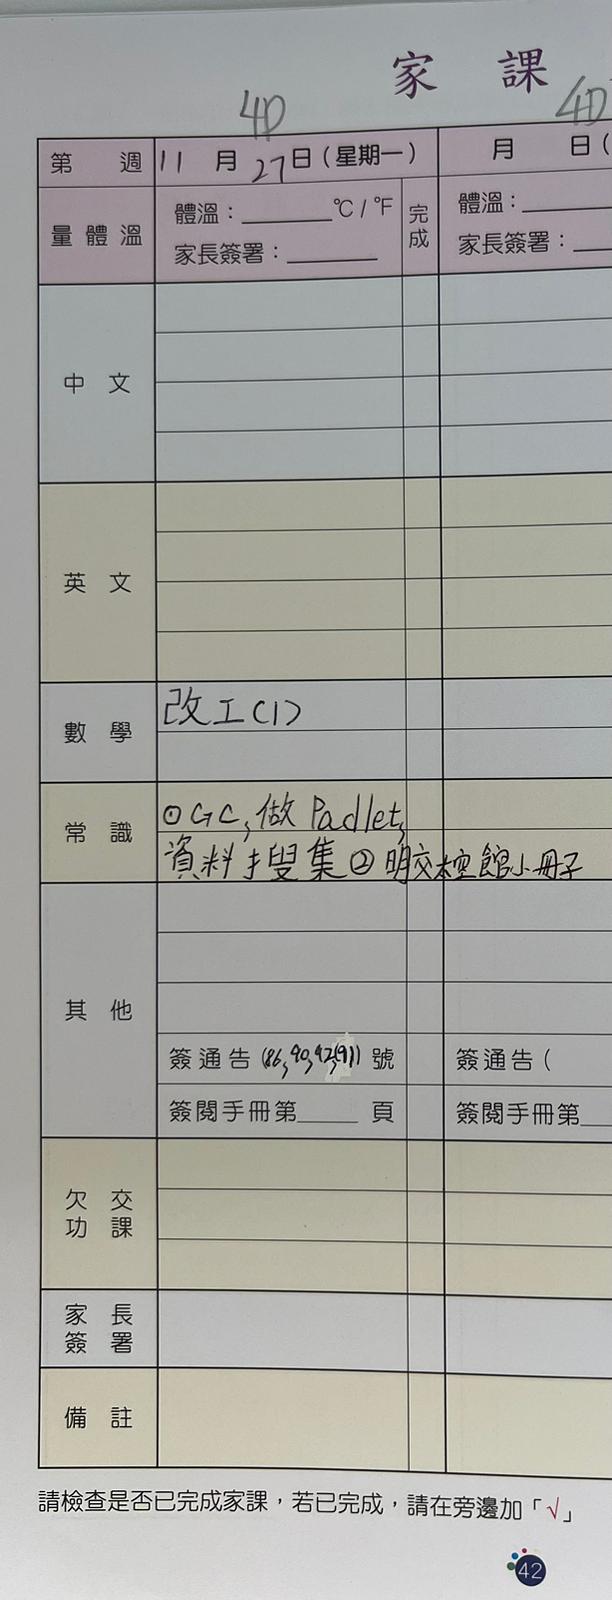 家 課
4D 4D
第 週 11 月 27 日(星期一) 月 日(
量體溫 體溫：______℃/℉ 完成 體溫：
家長簽署：______ 家長簽署：
中 文
英 文
數 學 改工(1)
常 識 ①GC,做Padlet,
資料搜集②明交太空館小冊子
其 他
簽通告(86,90,92,(91)) 號 簽通告(
簽閱手冊第____頁 簽閱手冊第
欠 交
功 課
家 長
簽 署
備 註
請檢查是否已完成家課，若已完成，請在旁邊加「√」
42